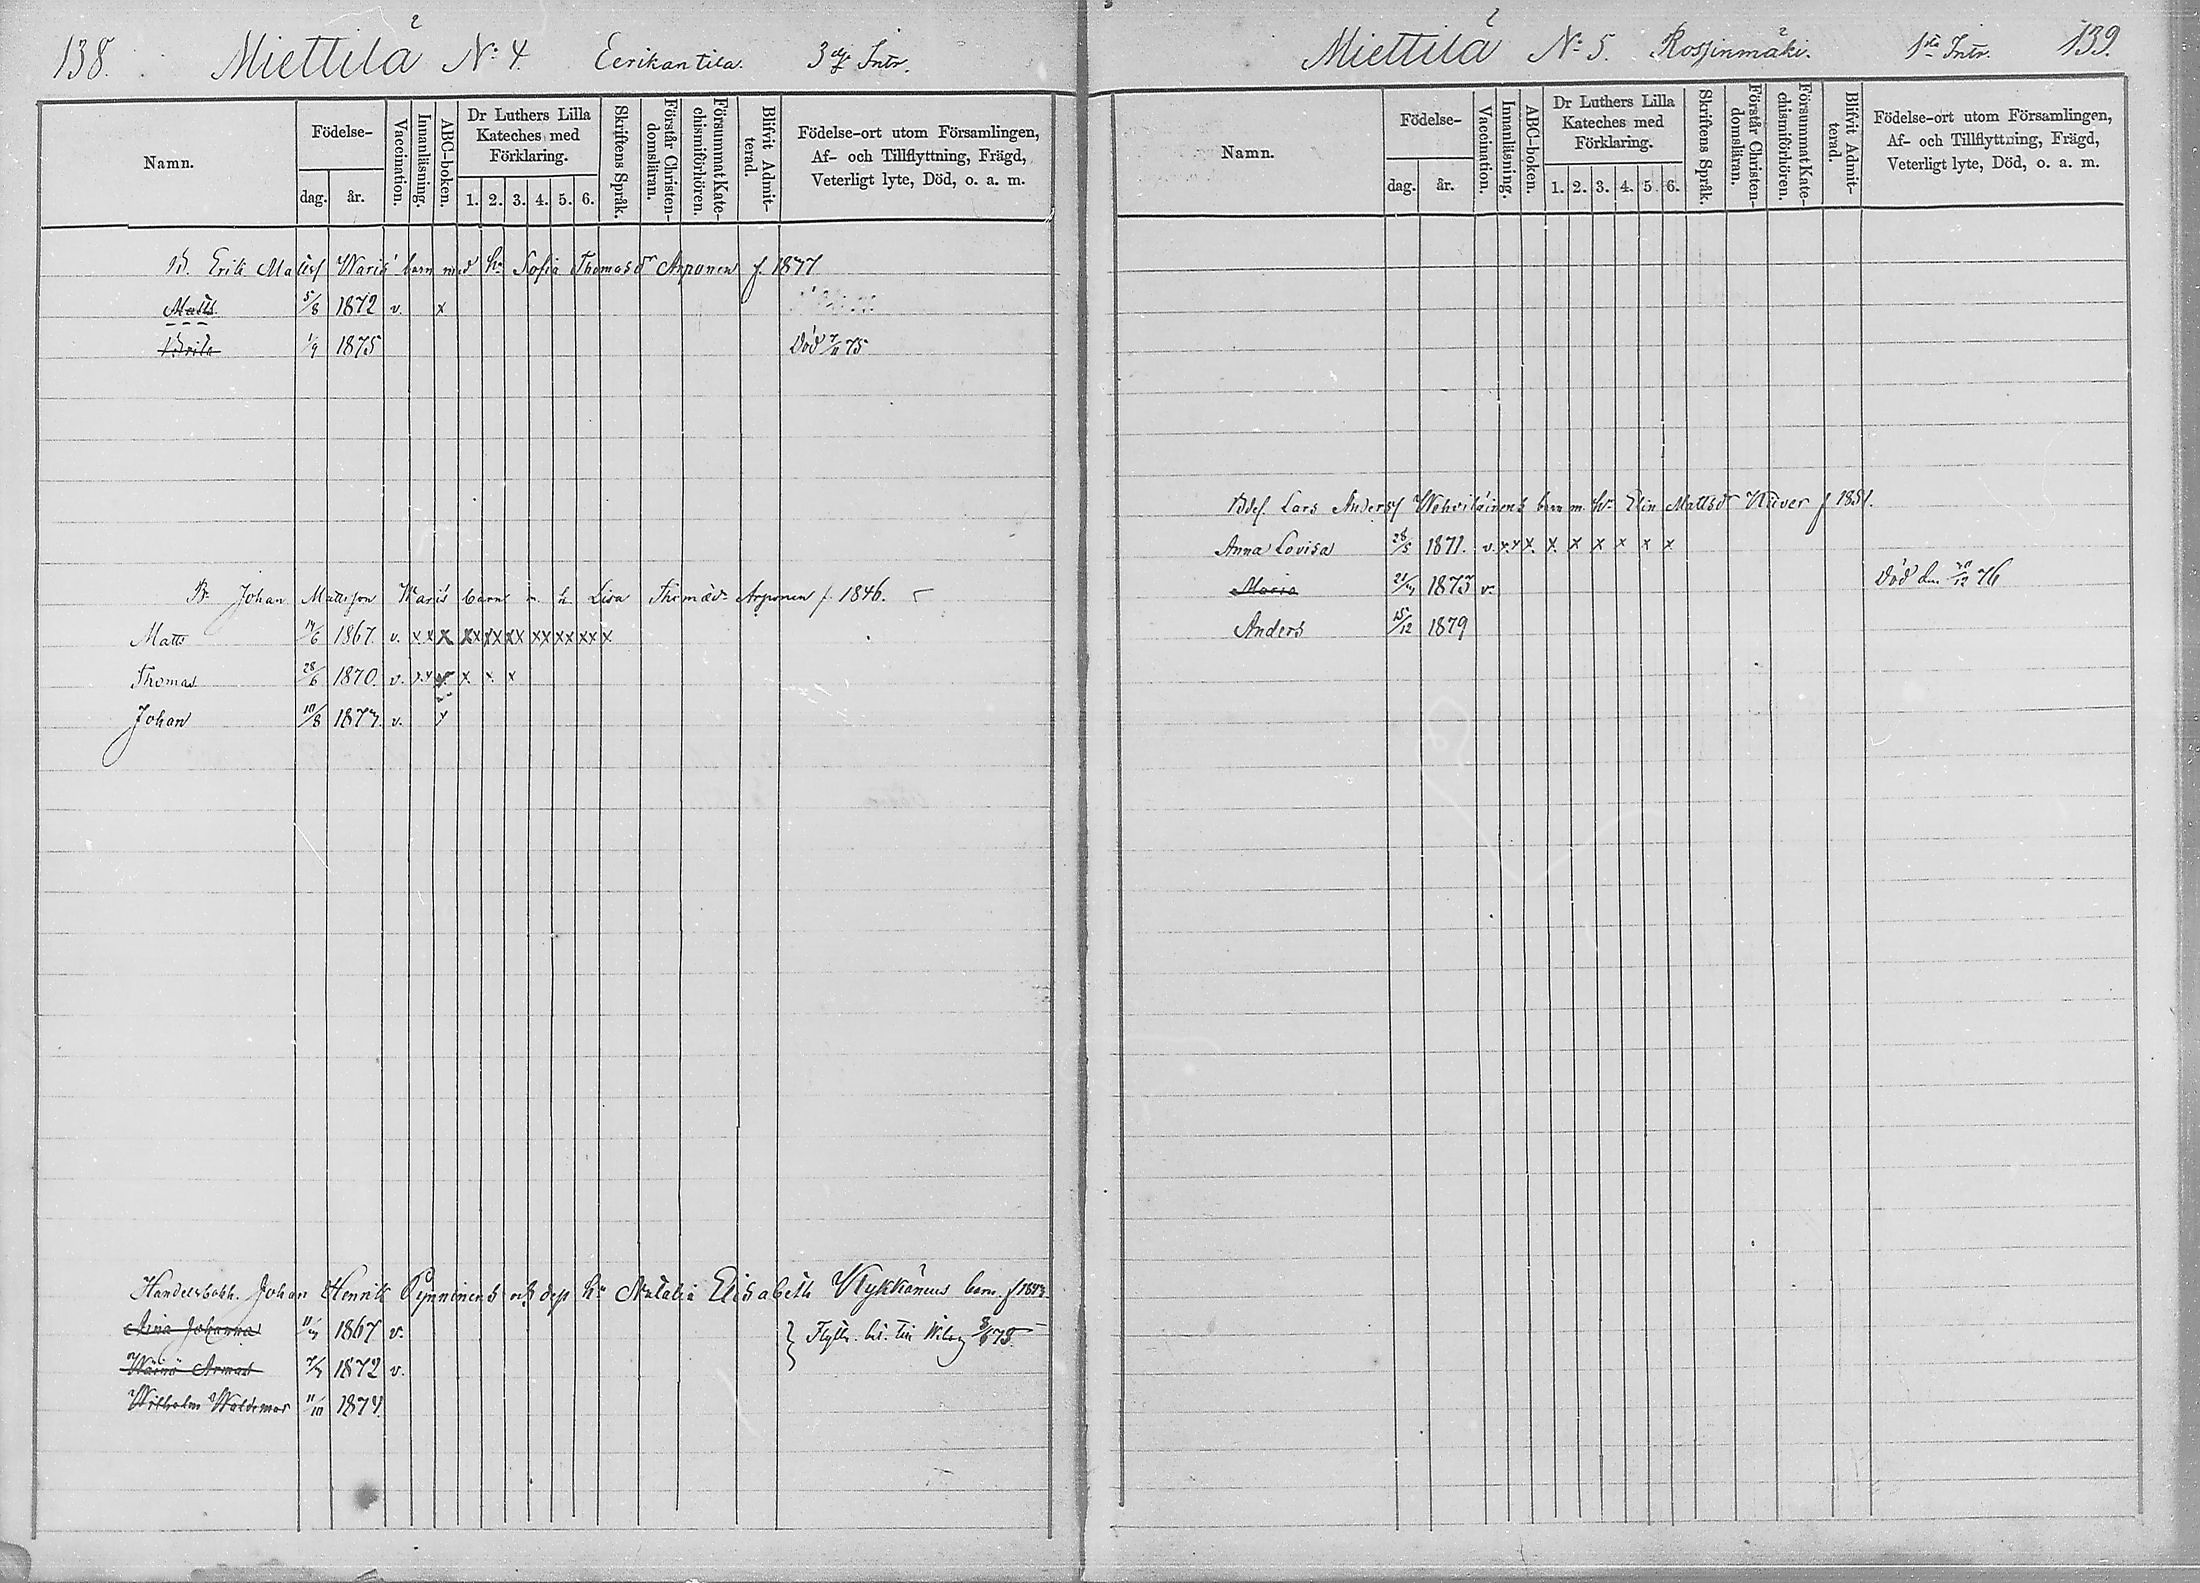 138. Miettilä No 4. Eerikantila. 3dj Intr.
Namn.
Födelse-
dag. år.
Vaccination.
Innanläsning.
ABC-boken.
Dr Luthers Lilla Kateches med Förklaring.
1. 2. 3. 4. 5. 6.
Skriftens Språk.
Förstår Christendomsläran.
Försummat Katechismiförhören.
Blifvit Admitterad.
Födelse-ort utom Församlingen, Af- och Tillflyttning, Frägd, Veterligt lyte, Död, o. a. m.
B. Erik Matts Waris' barn med hu Sofia Thomasdr Arponen f. 1877
Matts 5/8 1872 v. x
1/9 1875 Död 7/11 75
Br Johan Mattsson Waris barn m. h. Lisa Thomædr Arponen f. 1846.
Matts 14/6 1867. v. x x x x x x x x x x x x x x x x
Thomas 28/6 1870. v. x x x x. x. x
Johan 10/8 187 v. x
Handelsbokh. Johan Henrik Pynninens och dess hu Natalia Elisabeth Nykkänens barn. f 184
Aina Johanna 1867 v. } Flytt. till Wiborg 78.
Wäinö Armas 1872 v.
Wilhelm Waldemar 11/10 1874
Miettilä No 5. Rossinmäki. 1sta Intr. 139.
Namn.
Födelse-
dag. år.
Vaccination.
Innanläsning.
ABC-boken.
Dr Luthers Lilla Kateches med Förklaring.
1. 2. 3. 4. 5. 6.
Skriftens Språk.
Förstår Christendomsläran.
Försummat Katechismiförhören.
Blifvit Admitterad.
Födelse-ort utom Församlingen, Af- och Tillflyttning, Frägd, Veterligt lyte, Död, o. a. m.
Lars Anders Wehviläinens barn m. hu Elin Mattsdr f 1851.
Anna Lovisa 28/5 1871. v. x x x. x. x x x x x
Maria 1873 v. Död den 76
Anders 15/12 1879